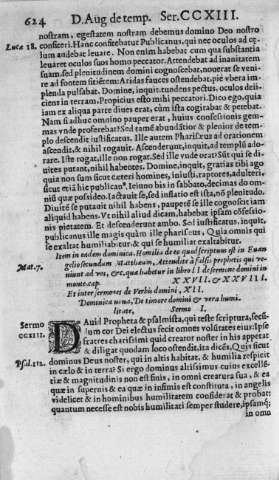 624 D. Aug de temp. Ser. CCXIII.
nostram, egestatem nostram debemus domino Deo nostro
Luce 18. confiteri. Hanc confitebatur Publicanus, qui nec oculos ad cę
lum audebat leuare. Non enim habebat cum qua substantia
leuaret oculos suos homo peccator. Attendebat ad inanitatem
suam, sed plenitudinem domini cognoscebat, nouerat se veni
re ad fontem sitientem. Aridas fauces ostendebat, pie vbera im
plenda pulsabat. Domine, inquit, tundens pectus, oculos de
ciens in terram, Propitius esto mihi peccatori. Dico ego, quia
iam ex aliqua parte diues erat, cùm ista cogitabat & petebat.
Nam si adhuc omnino pauper erat, huius confessionis gem-
mas vnde proferebat? Sed tamē abundātior & plenior de tem-
plo descendit iustificatus. Ille autem Pharisæus ad orationem
ascendit, & nihil rogauit. Ascenderunt, inquit, ad templū ado
rare. Iste rogat, ille non rogat. Sed ille vnde erat? Sūt qui se di-
uites putant, nihil habētes. Domine, inquit, gratias tibi ago
quia non sum sicut cæteri homines, iniusti, raptores, adulteri,
sicut etiā hic publican⁹. Ieiuno bis in sabbato, decimas do om-
niū quæ possideo. Iactauit se, sed inflatio est ista, nō plenitudo.
Diuitē se putauit nihil habens, pauperē se ille cognoscit iam
aliquid habens. Vt nihil aliud dicam, habebat ipsam cōfessio-
nis pietatem. Et descenderunt ambo. Sed iustificatus, inquit,
publicanus ille magis quàm ille pharisæus, Quia omnis qui
se exaltat humiliabitur & qui se humiliat exaltabitur.
Item in eadem dominica. Homilia de eo quod scriptum est in Euan
gelio secundum Matthæum, Attendite à falsis prophetis qui ve-
Mat. 7. niunt ad vos, &c. quæ habetur in libro II de sermone domini in
monte. cap. XXVII. & XXVIII.
Et inter sermones de Verbis domini, XII.
Dominica nona, De timore domini & vera humi
litate, Sermo I.
Sermo CCXIII. DAuid Propheta & psalmista, qui teste scriptura, secū-
dum cor Dei electus fecit omnes volūtates eius, Ipse
fratres charissimi quid creator noster in his appetat
& diligat quodam loco ostendit, ita dicēs, Quis sicut
Psal. 112. dominus Deus noster, qui in altis habitat, & humilia respicit
in cælo & in terra? Si ergo dominus altissimus cuius excelsi-
tiæ & magnitudinis non est finis, in omni creatura sua, & ea
quæ in supernis & ea quæ in infimis est constituta, in angelis
videlicet & in hominibus humilitatem considerat & probat:
quantum necesse est nobis humilitati semper studere, ipsamq;
in omo